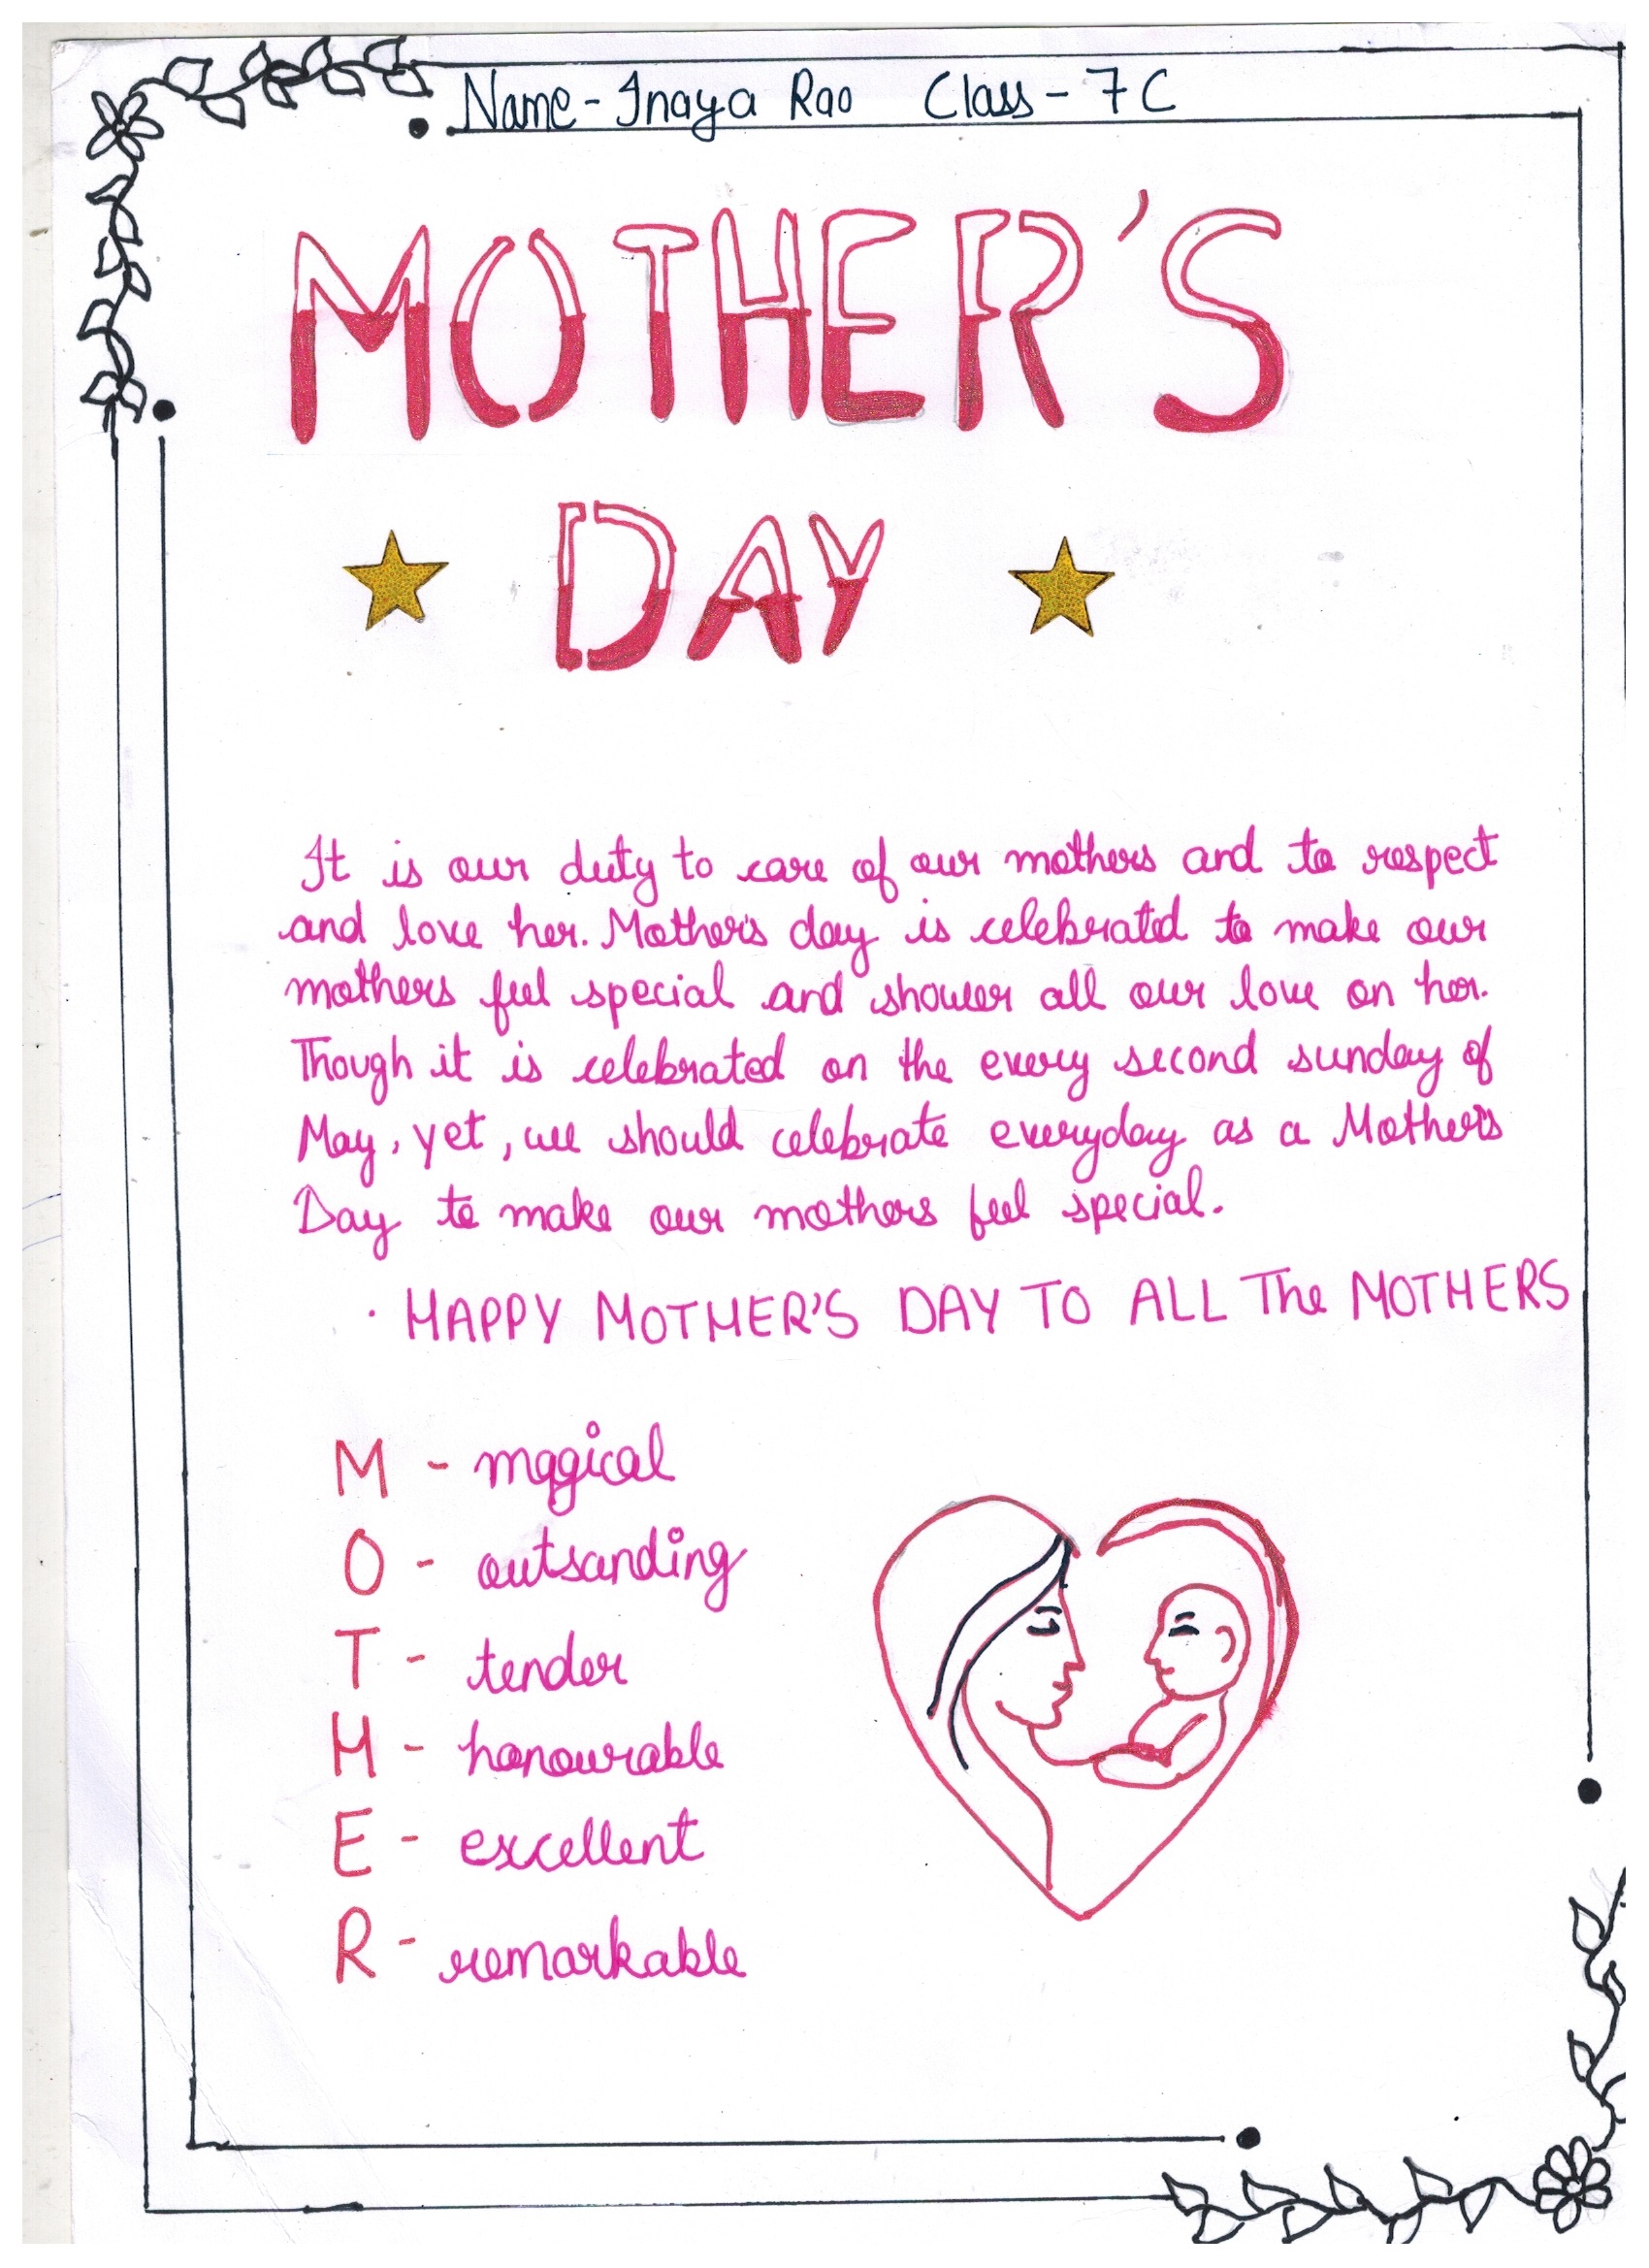 Name - Inaya Rao Class - 7 C
MOTHER'S
DAY
It is our duty to care of our mothers and to respect
and love her. Mother's day is celebrated to make our
mothers feel special and shower all our love on her.
Though it is celebrated on the every second sunday of
May, yet, we should celebrate everyday as a Mother's
Day to make our mothers feel special.
· HAPPY MOTHER'S DAY TO ALL The MOTHERS
M - magical
O - outsanding
T - tender
H - honourable
E - excellent
R - remarkable